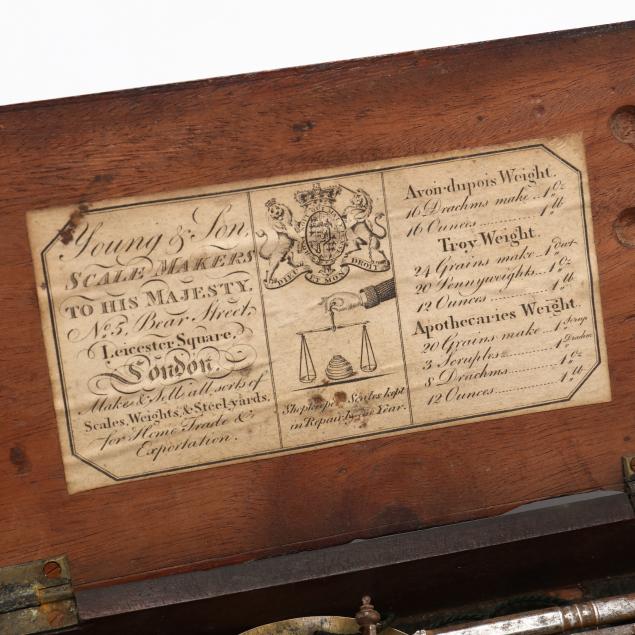 Young & Son,
SCALE MAKERS
TO HIS MAJESTY.
No. 5, Bear Street,
Leicester Square,
London.
Make & Sell all sorts of
Scales, Weights, & Steel-yards,
for Home Trade &
Exportation.
DIEU ET MON DROIT
Shopkeepers Scales kept
in Repair by the Year.
Avoir-dupois Weight.
16 Drachms make .. 1 Oz
16 Ounces .............. 1 lb
Troy Weight.
24 Grains make .. 1 Dwt
20 Pennyweights... 1 Oz
12 Ounces ............. 1 lb
Apothecaries Weight.
20 Grains make .. 1 Scrup
3 Scruples .............. 1 Drachm
8 Drachms .............. 1 Oz
12 Ounces ............... 1 lb